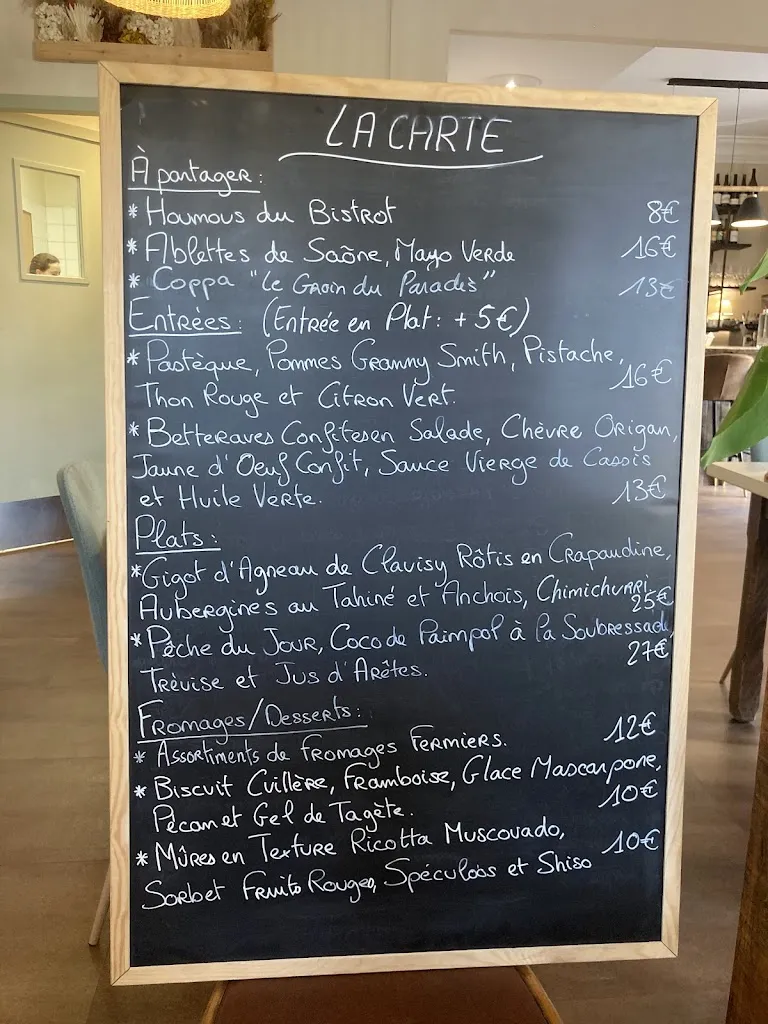 LA CARTE
À partager :
* Houmous du Bistrot 8€
* Ablettes de Saône, Mayo Verde 16€
* Coppa "Le Groin du Paradis" 13€
Entrées : (Entrée en Plat : + 5€)
* Pastèque, Pommes Granny Smith, Pistache,
Thon Rouge et Citron Vert. 16€
* Betteraves Confites en Salade, Chèvre Origan,
Jaune d'Oeuf Confit, Sauce Vierge de Cassis
et Huile Verte. 13€
Plats :
* Gigot d'Agneau de Clavisy Rôtis en Crapaudine,
Aubergines au Tahiné et Anchois, Chimichurri 25€
* Pêche du Jour, Coco de Paimpol à la Soubressade,
Trévise et Jus d'Arêtes. 27€
Fromages/Desserts :
* Assortiments de fromages Fermiers. 12€
* Biscuit Cuillère, Framboise, Glace Mascarpone,
Pécan et Gel de Tagète. 10€
* Mûres en Texture Ricotta Muscovado, 10€
Sorbet Fruits Rouges, Spéculoos et Shiso